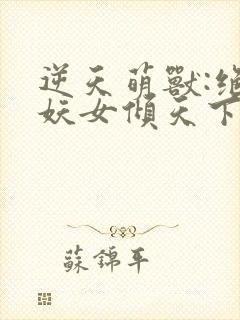 逆天萌獸:絕
妖女傾天下
蘇錦年